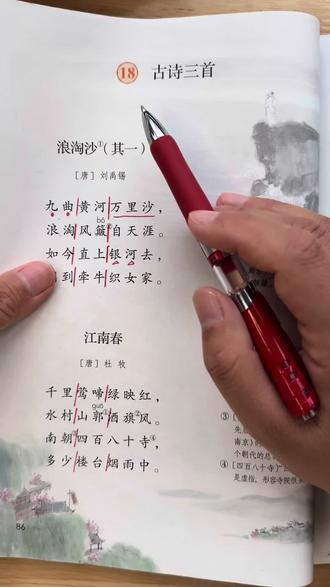 18 古诗三首
浪淘沙①(其一)
[唐] 刘禹锡
九曲黄河万里沙,
bǒ
浪淘风簸自天涯。
如今直上银河去,
到牵牛织女家。
江南春
[唐] 杜 牧
千里莺啼绿映红,
guō
水村山郭②酒旗③风。
南朝四百八十寺④,
多少楼台烟雨中。
③
先后
南京)的
个朝代的总
④ [四百八十寺]
是虚指,形容寺院很
86